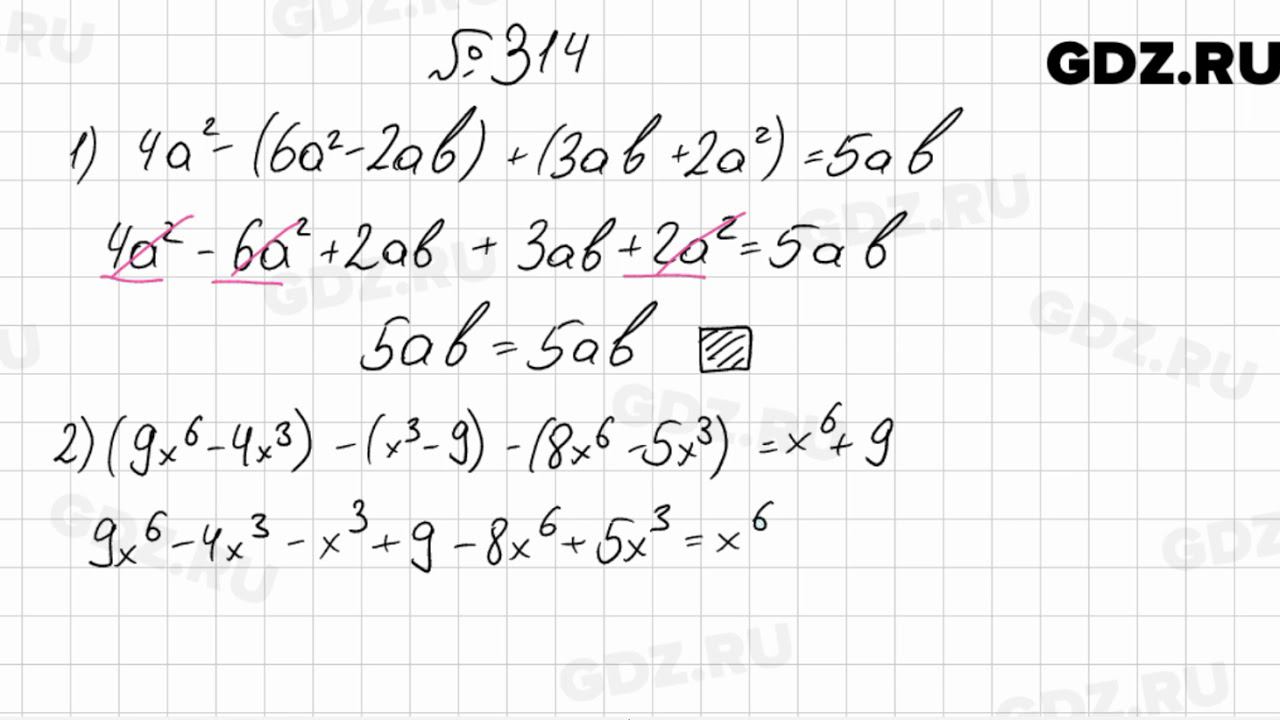 № 314
GDZ.RU
1) 4a² - (6a² - 2ab) + (3ab + 2a²) = 5ab
4a² - 6a² + 2ab + 3ab + 2a² = 5ab
5ab = 5ab
2) (9x⁶ - 4x³) - (x³ - 9) - (8x⁶ - 5x³) = x⁶ + 9
9x⁶ - 4x³ - x³ + 9 - 8x⁶ + 5x³ = x⁶